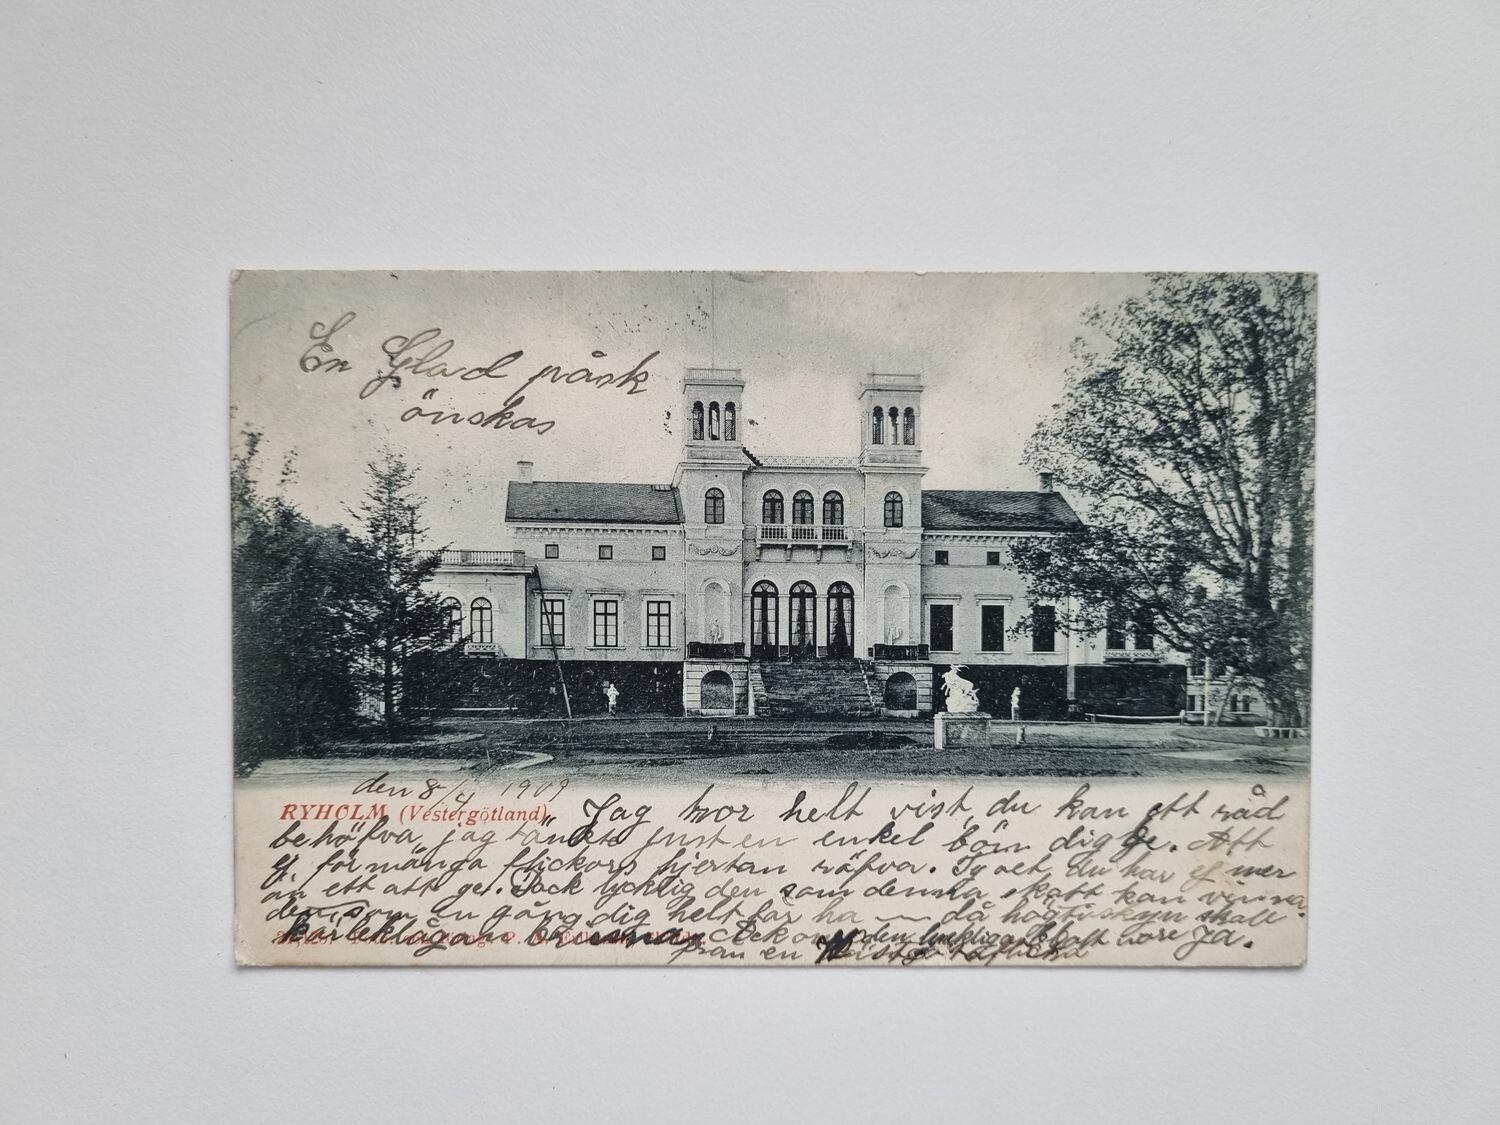 En Glad påsk
önskas
den 8/4 1909
RYHOLM (Vestergötland)
Jag tror helt vist, du kan ett råd
behöfva, jag tänkte just en enkel bön dig ge. Att
ej för många flickors hjertan röfva. Ty vet du har ej mer
än ett att ge. Tack lycklig den som denna skatt kan vinna.
den, som en gång dig helt får ha — då högt i skyn skall
kärlekslågan brinna, Ack om den lyckliga blott vore Ja.
från en Västgötaflicka